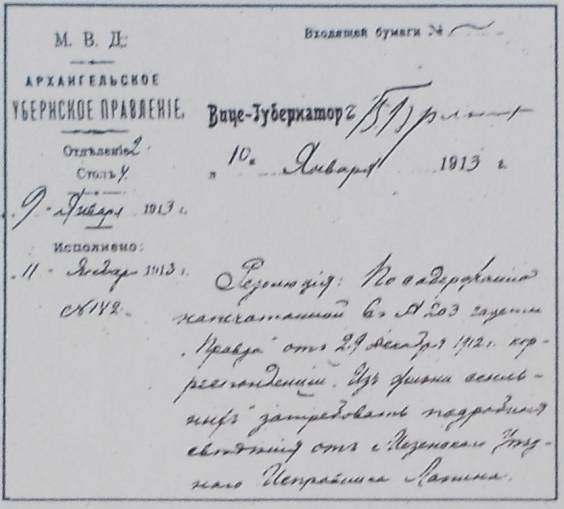 М. В. Д.
АРХАНГЕЛЬСКОЕ
ГУБЕРНСКОЕ ПРАВЛЕНІЕ.
Отдѣленіе 2
Столъ 4
9 Января 1913 г.
Исполнено:
11 Январ 1913 г.
№ 142.
Входящей бумаги №
Вице-Губернаторъ
„10„ Января 1913 г.
Резолюція: По содержанію
напечатанной въ № 203 газеты
„Правда" отъ 29 декабря 1912 г. кор-
респонденціи „Изъ жизни ссыль-
ныхъ" затребовать подробныя
свѣдѣнія отъ Мезенскаго Уѣзд-
наго Исправника Лапина.